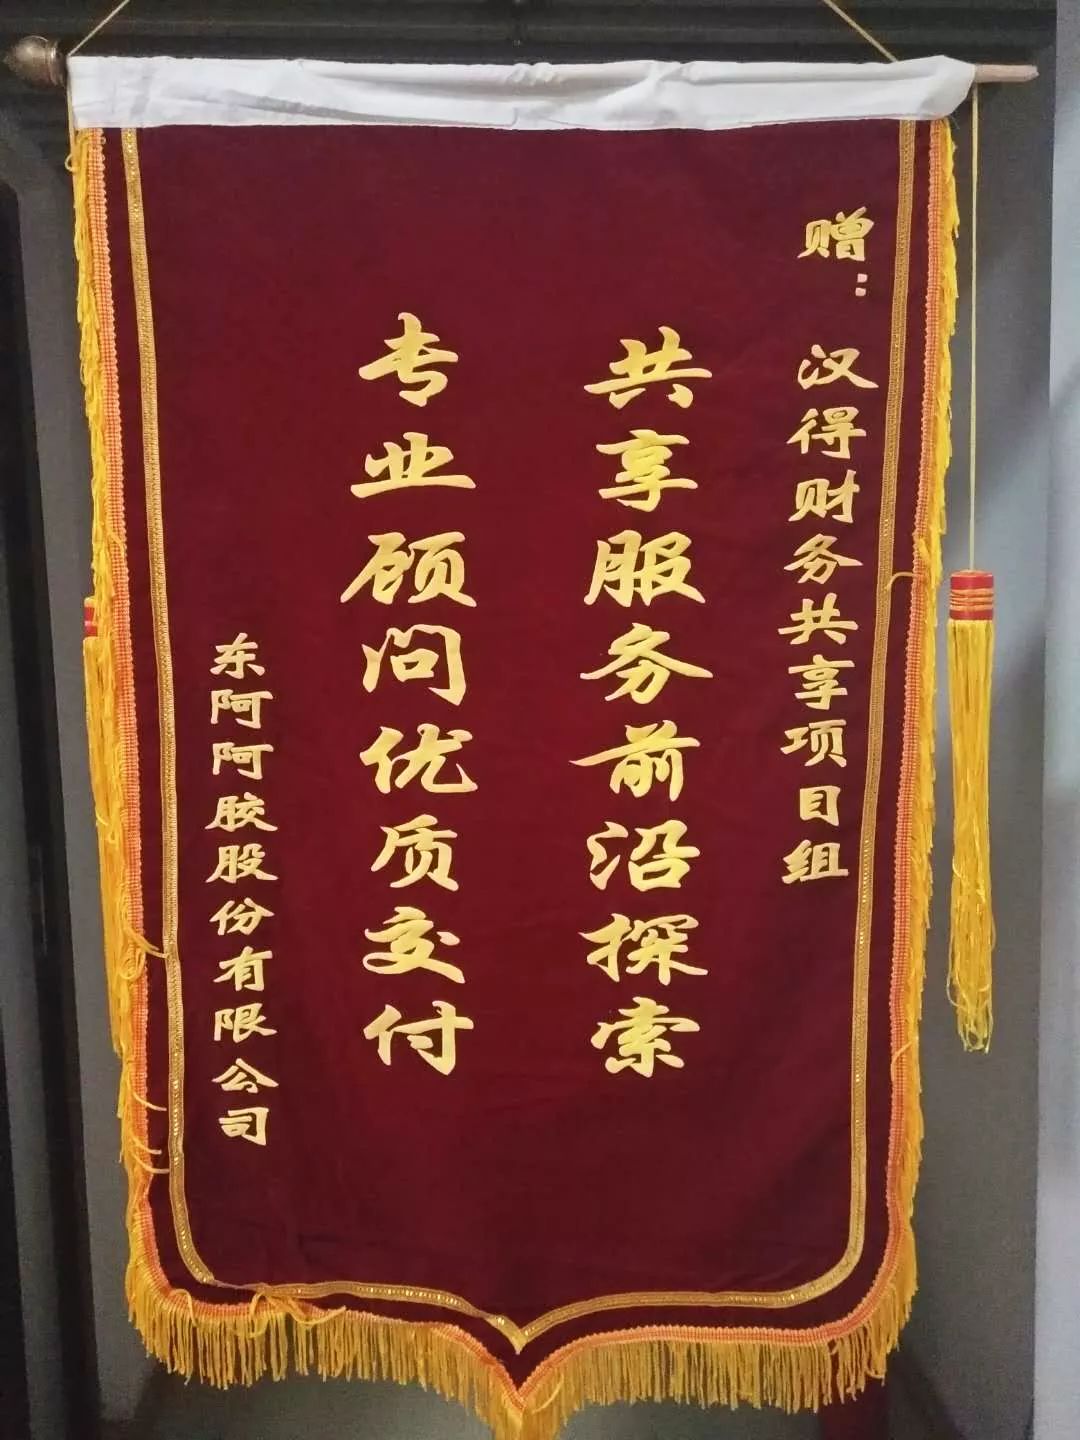 赠：汉得财务共享项目组
共享服务前沿探索
专业顾问优质交付
东阿阿胶股份有限公司